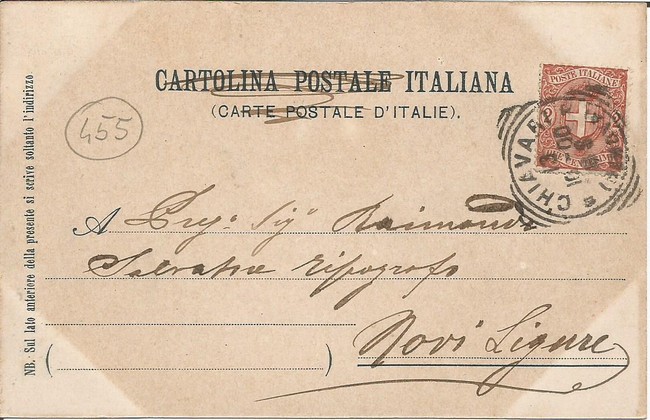 CARTOLINA POSTALE ITALIANA
(CARTE POSTALE D'ITALIE).
POSTE ITALIANE
CHIAVARI
455
A Preg. Sig. Raimondi
Salvatore Tipografo
Novi Ligure
NB. Sul lato anteriore della presente si scrive soltanto l'indirizzo